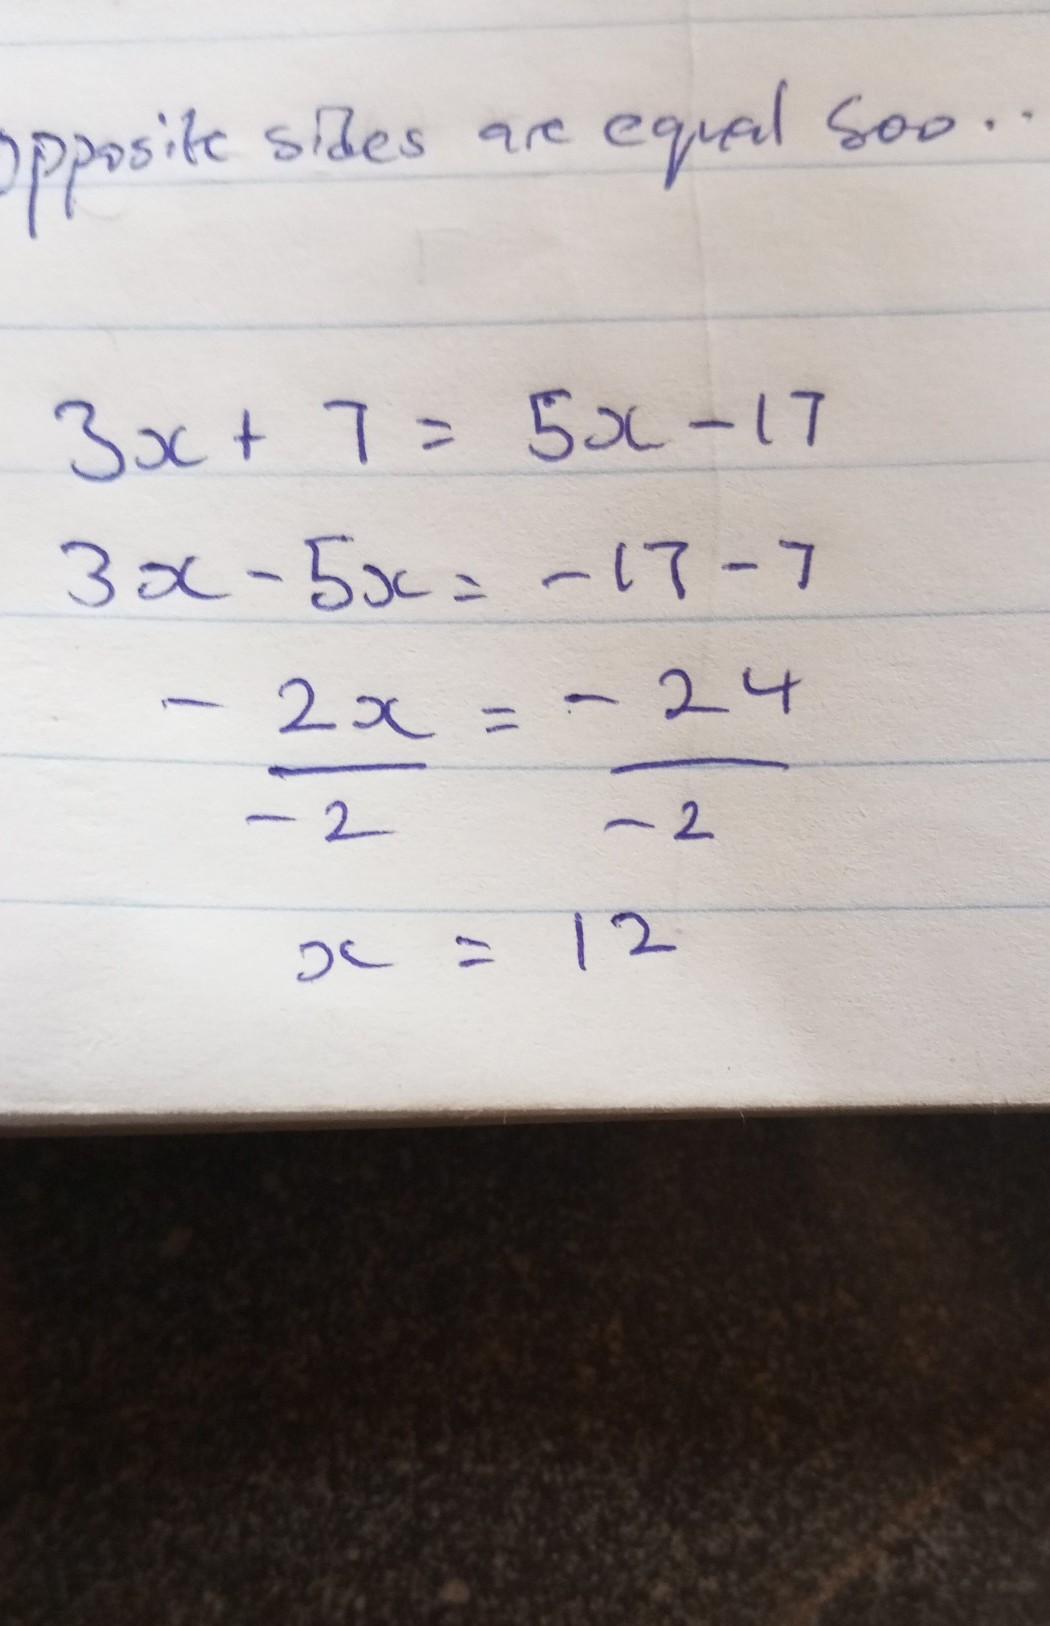 opposite sides are equal soo...
3x + 7 = 5x - 17
3x - 5x = -17 - 7
- 2x = - 24
-2 -2
x = 12